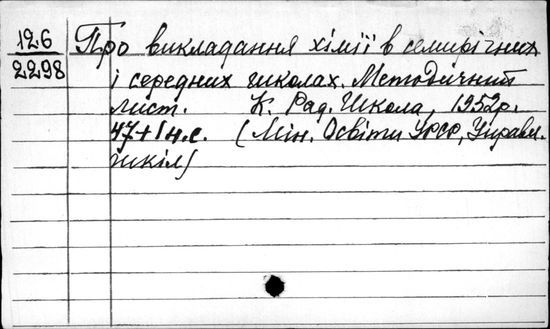 126
2298
Про викладання хімії в семирічних
і середних школах. Методичний
лист. К. Рад. Школа, 1952р.
47+1 н.с. (Мін. Освіти УРСР, Управл.
шкіл)